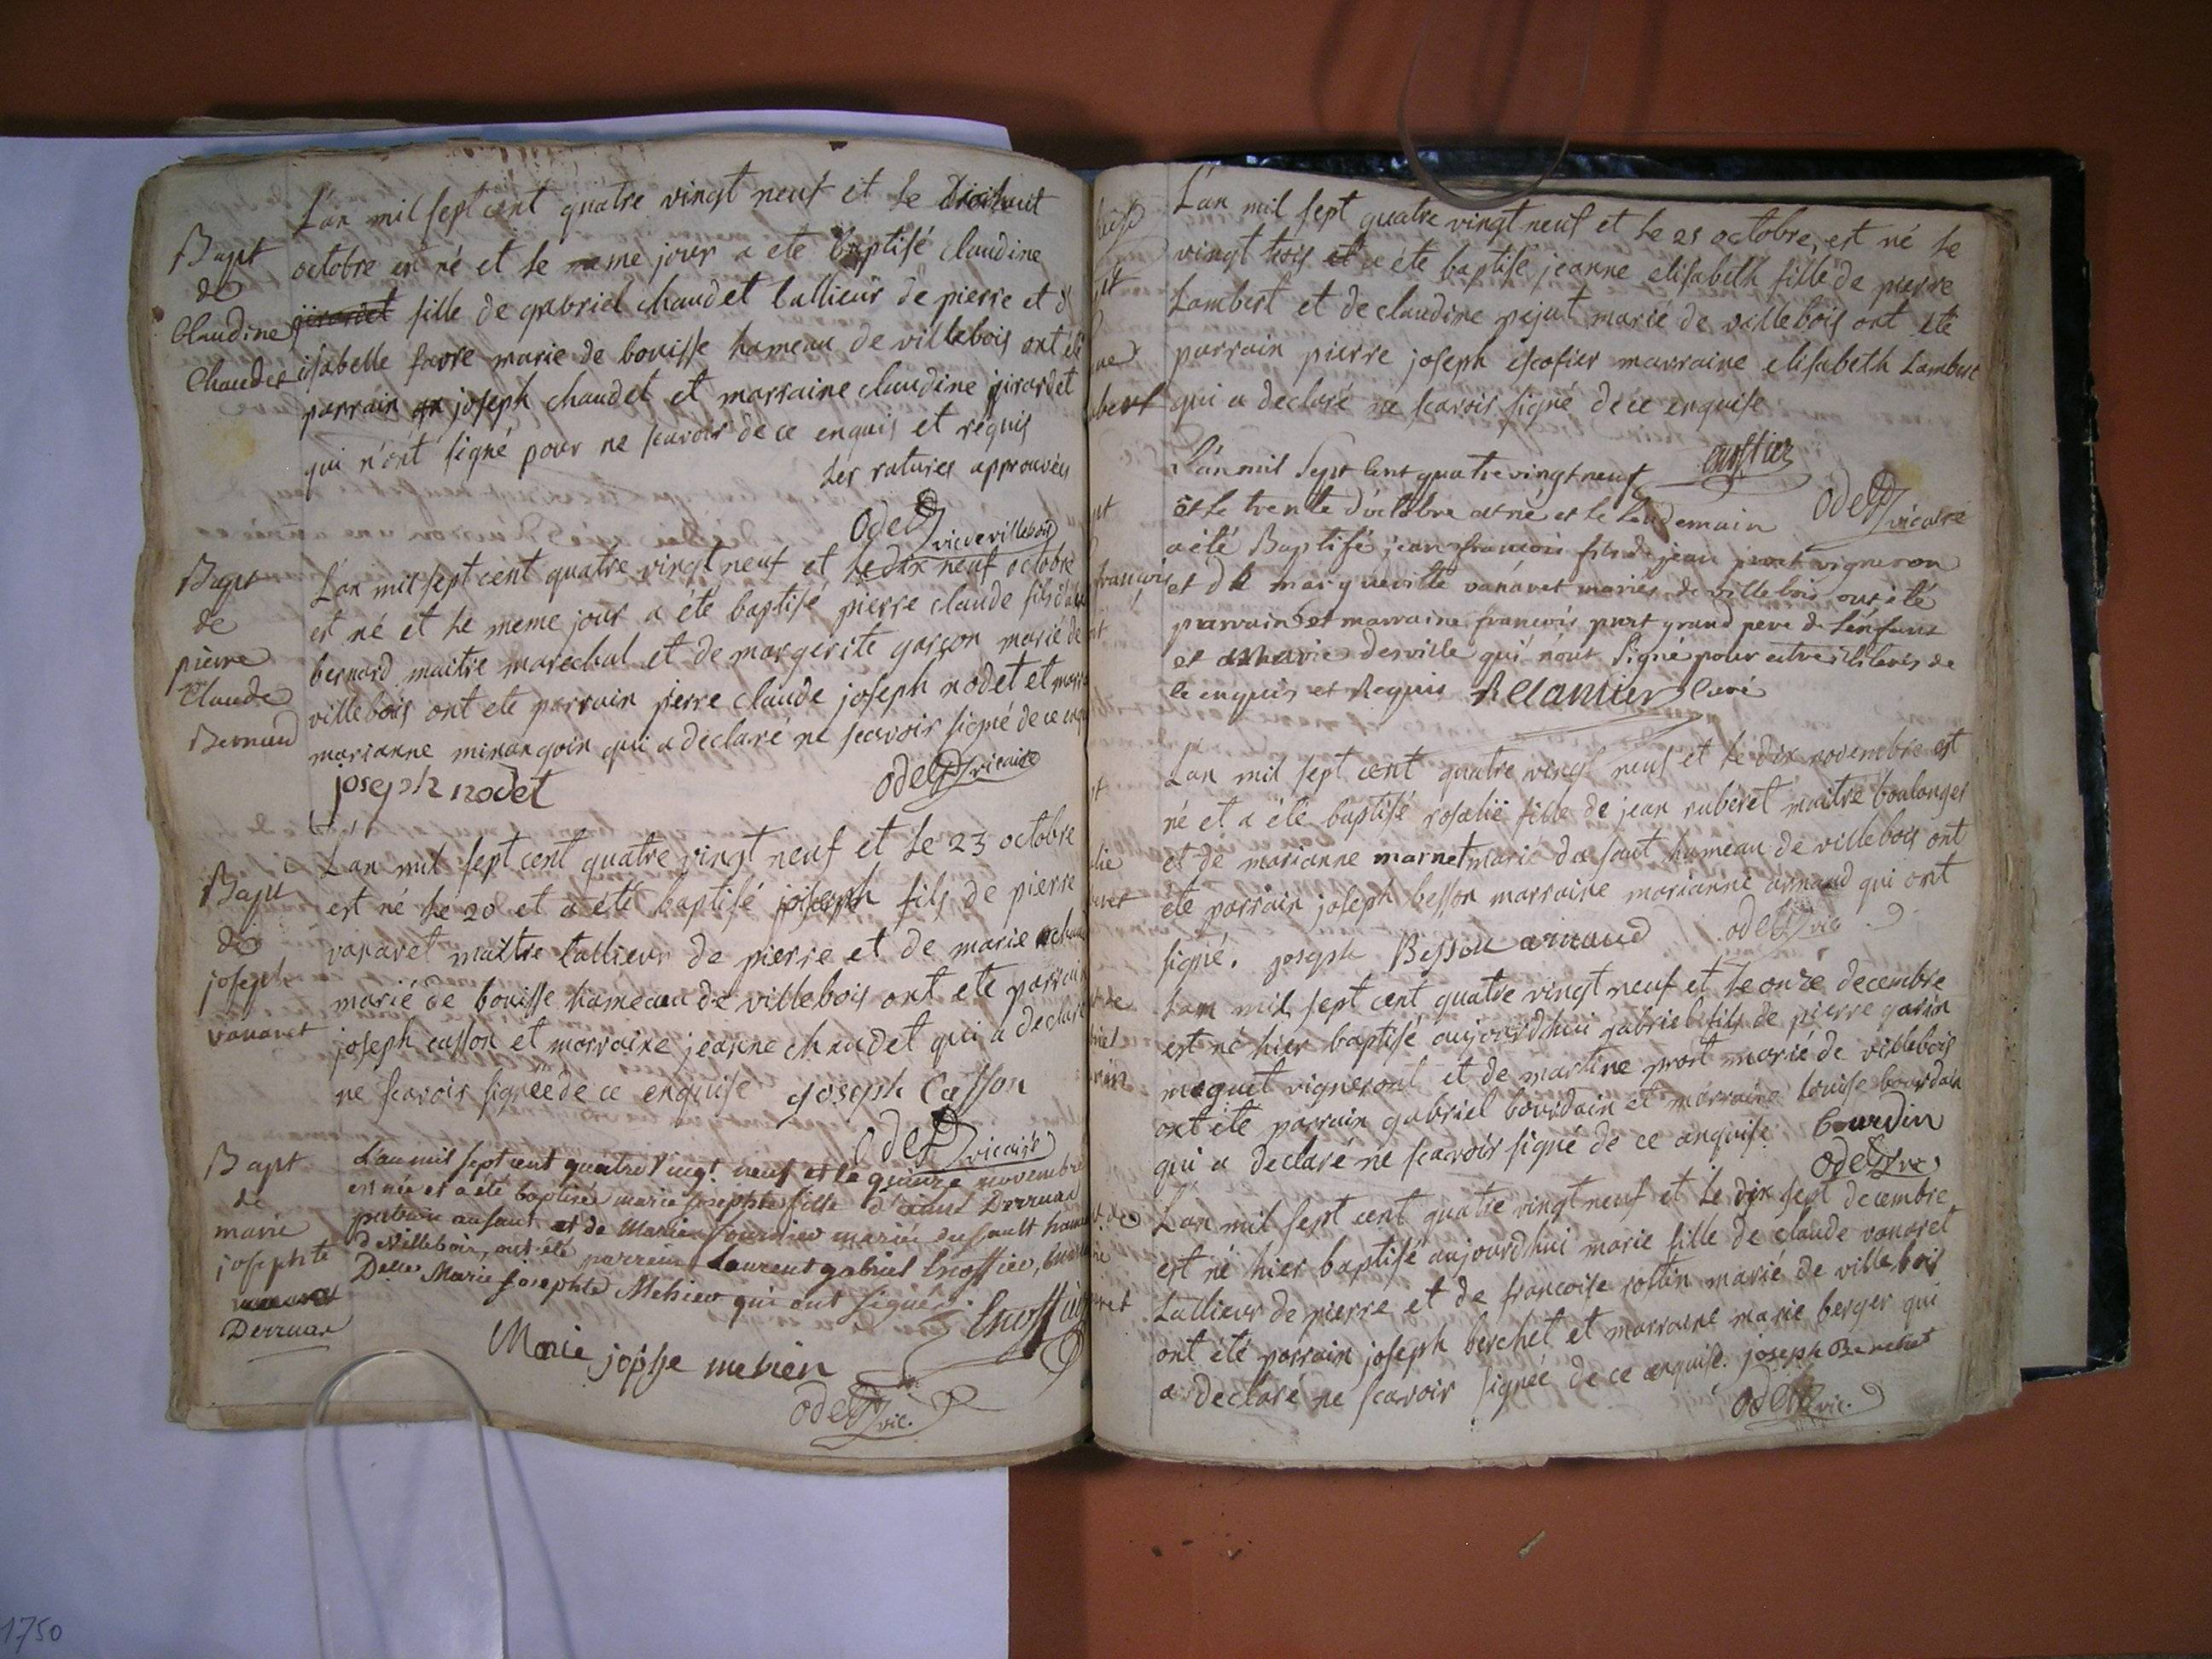 L'an mil sept cent quatre vingt neuf et le dixhuit
octobre est né et le meme jour a ete baptisé claudine
girardet fille de gabriel chaudet tallieur de pierre et d
isabelle favre marie de bouisse hameau de villebois ont été
parrain joseph chaudet et marraine claudine girardet
qui n'ont signé pour ne scavoir de ce enquis et requis
les ratures approuvées
Odet vic de villebois
Bapt
de
Claudine
Chaudet
L'an mil sept cent quatre vingt neuf et le dix neuf octobre
est né et le meme jour a été baptisé pierre claude fils
bernard maitre marechal et de margerite garçon marie de
villebois ont ete parrain pierre claude joseph nodet et
marianne minangoin qui a declaré ne scavoir signé de ce
joseph nodet
odet vicaire
Bapt
de
pierre
Claude
Bernard
L'an mil sept cent quatre vingt neuf et le 23 octobre
est né le 20 et a été baptisé joseph fils de pierre
vanaret maitre tallieur de pierre et de marie
marié de bouisse hameau de villebois ont ete parrain
joseph casson et marraine jeanne chaudet qui a declaré
ne scavoir signée de ce enquise joseph Casson
Odet vicaire
Bapt
de
joseph
vanaret
L'an mil sept cent quatre vingt neuf et le quinze novembre
est née et a été baptisée marie josephte fille d'aimé Derruaz
au saut et de Marie fournier mariés au sault
de Villebois, ont été parrein Laurent gabriel
Delle Marie josephte Mehier qui ont signés.
Marie mehier
odet vic.
Bapt
de
marie
josephte
Derruaz
L'an mil sept quatre vingt neuf et le 25 octobre, est né le
vingt trois et a été baptisé jeanne elisabeth fille de pierre
Lambert et de claudine pejut marié de villebois ont été
parrain pierre joseph escofier marraine elisabeth Lambert
qui a declaré ne scavoir signé de ce enquise
Odet vicaire
L'an mil Sept Cent quatre vingt neuf
et le trente d'octobre est né et le lendemain
a été Baptisé jean françois fils de jean vigneron
et de vanaret mariés de villebois ont été
parrain et marraine françois grand pere de l'enfant
et marie desville qui n'ont Signé pour être illiterés de
ce enquis et Requis Curé
L'an mil sept cent quatre vingt neuf et le dix novembre est
né et a été baptisé rosalie fille de jean ruberet maitre boulanger
et de marianne marnet marié du saut hameau de villebois ont
été parrain joseph besson marraine marianne arnaud qui ont
signé. joseph Besson arnaud odet vic
L'an mil sept cent quatre vingt neuf et le onze decembre
est né hier baptisé aujourdhui gabriel fils de pierre garin
maquet vigneront et de martine prost marié de villebois
ont été parrain gabriel bourdain et marraine louise bourdain
qui a declaré ne scavoir signé de ce enquise bourdin
odet vic
L'an mil sept cent quatre vingt neuf et le dix sept decembre
est né hier baptisé aujourdhui marie fille de claude vanaret
tallieur de pierre et de francoise rostin marié de villebois
ont été parrain joseph berchet et marraine marie berger qui
a declaré ne scavoir signée de ce enquise. joseph Berchet
Odet vic.
1750